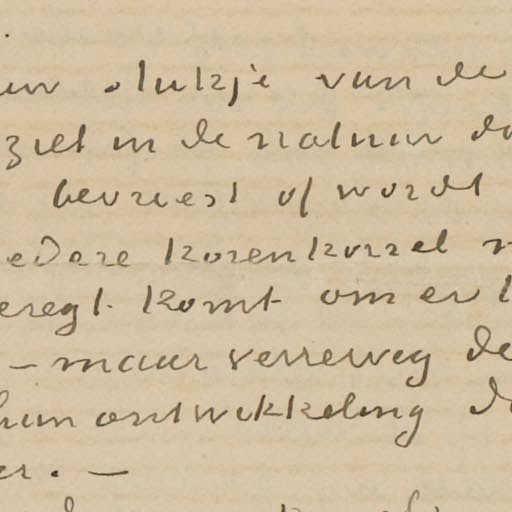 uw stukje van de
ziet in de natuur da
bevriest of wordt
iedere korenkorrel n
teregt komt om er
– maar verreweg de
hun ontwikkeling d
er. –